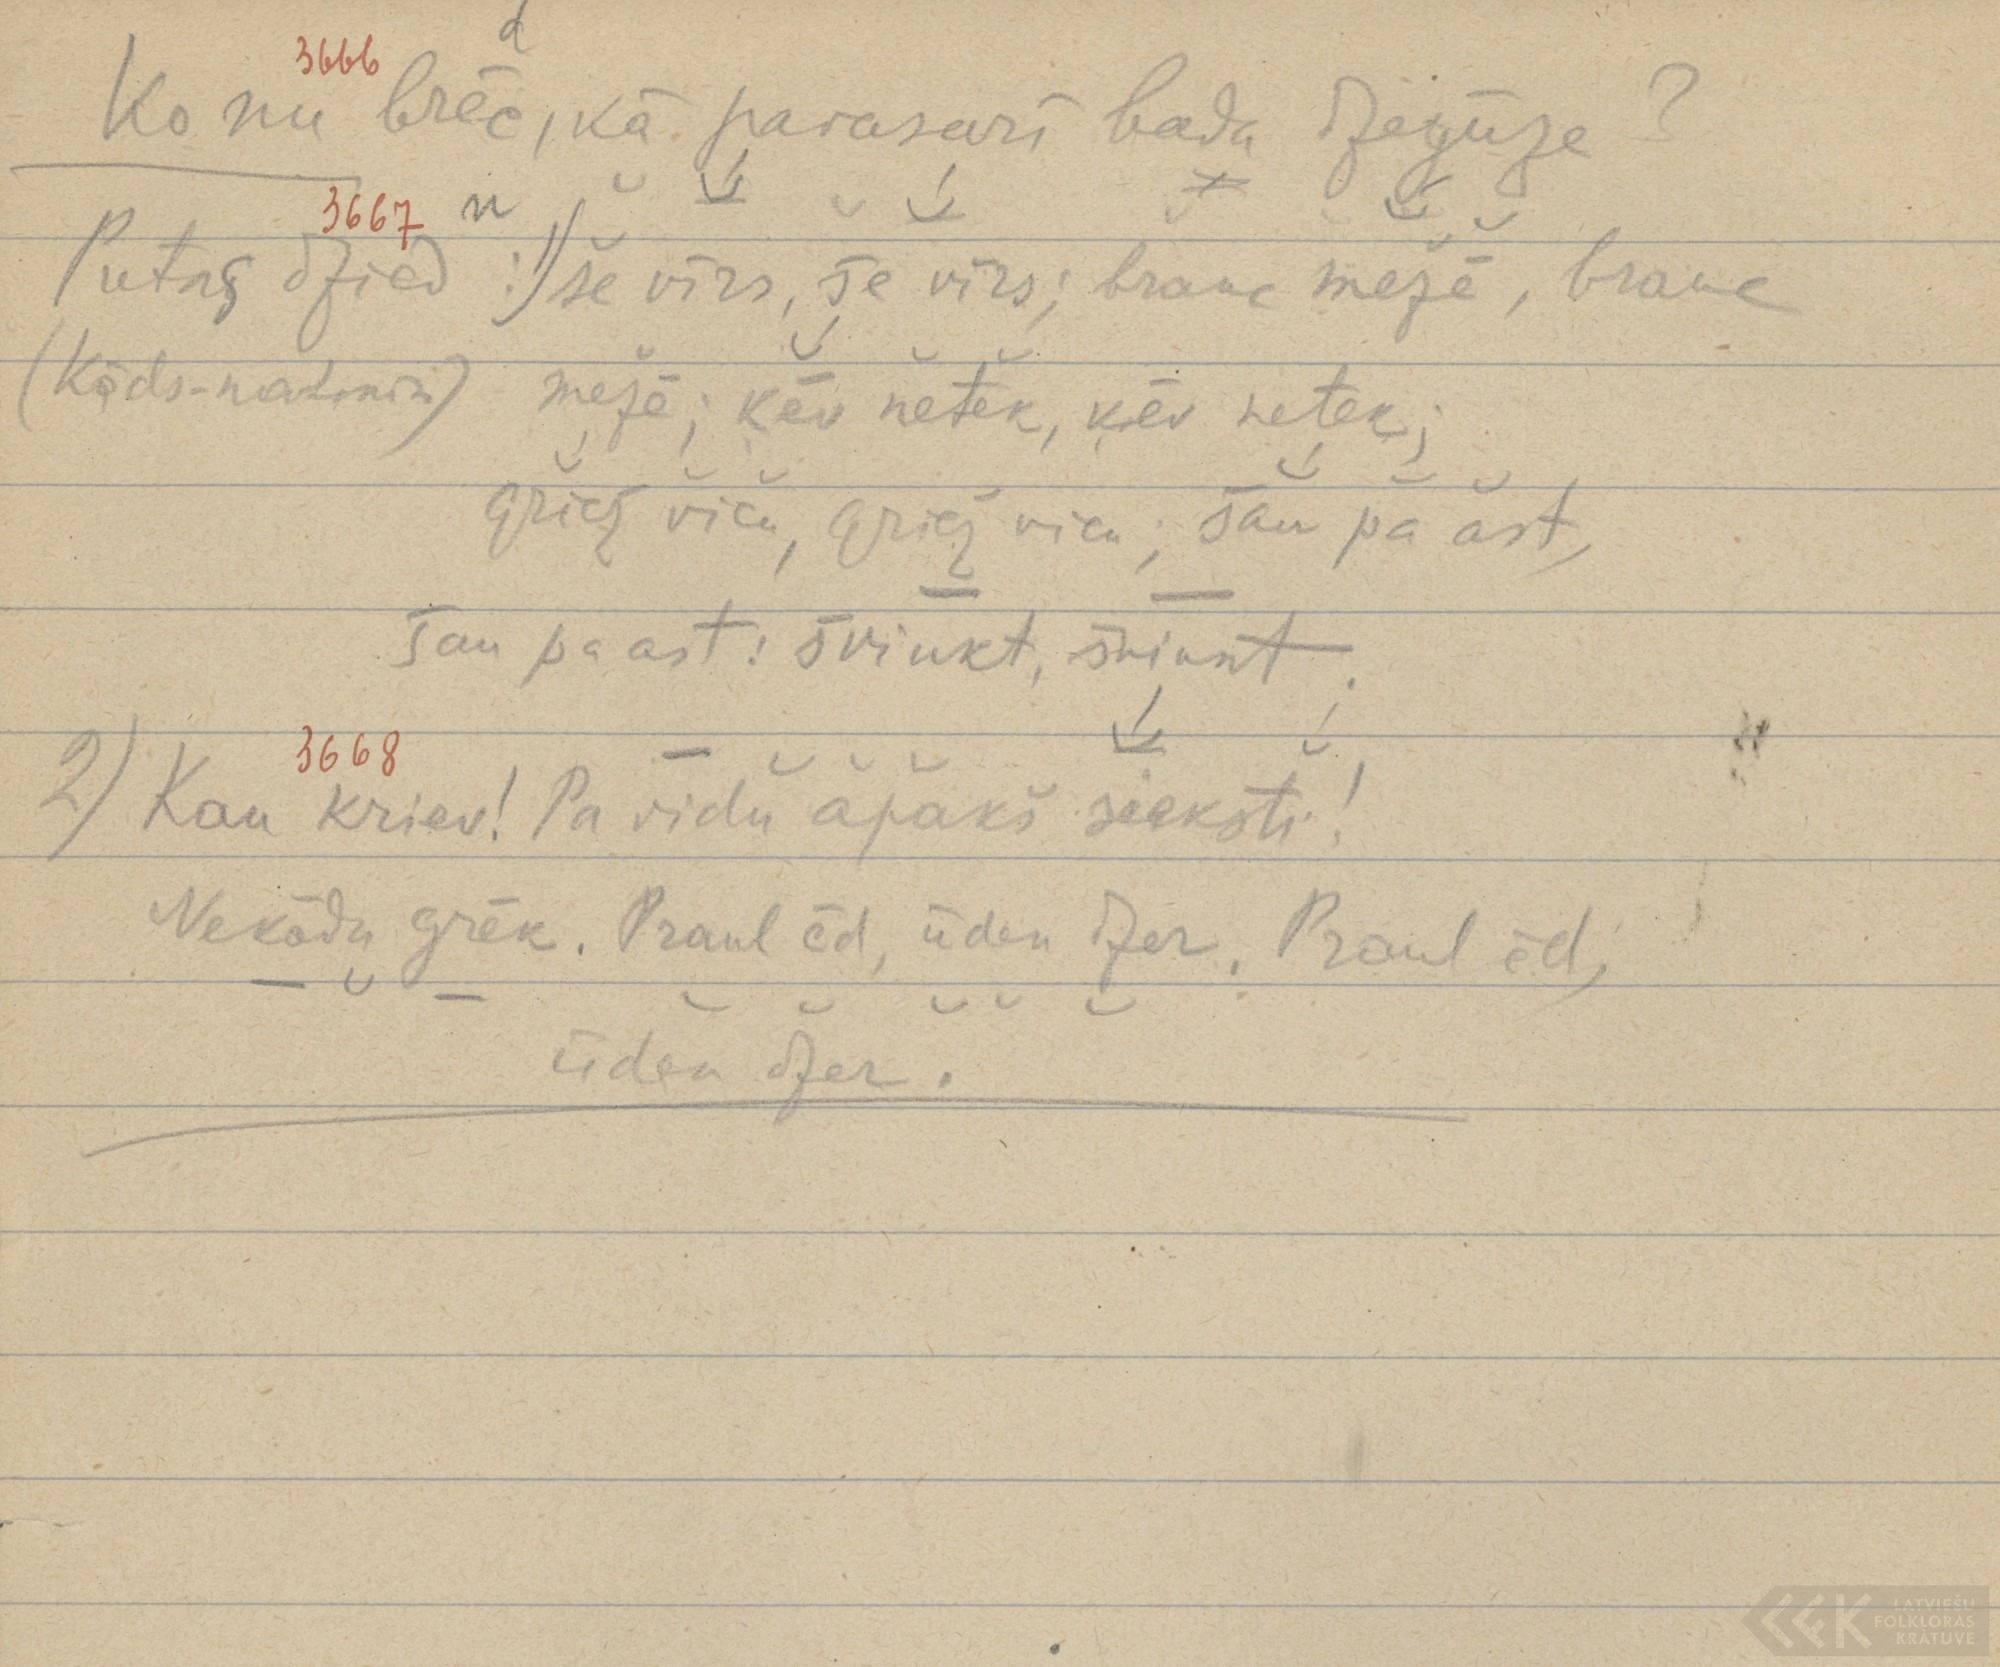 d
3666
Ko nu brēc, kā pavasarī badu dzegūze?
3667 n
Putns dzied: 1) še vīrs, še vīrs; brauc mežē, brauc
(Kāds-nezinin) mežē; ķēv netek, ķēv netek;
griez vicu, griez vicu; šau pa ast,
šau pa ast: švinkt, švinkt.
3668
2) Kau kriev! Pa vidu apakš sieksti!
Nekādu grēk. Praul ēd, ūden dzer. Praul ēd,
ūden dzer.
LATVIEŠU
FOLKLORAS
KRĀTUVE